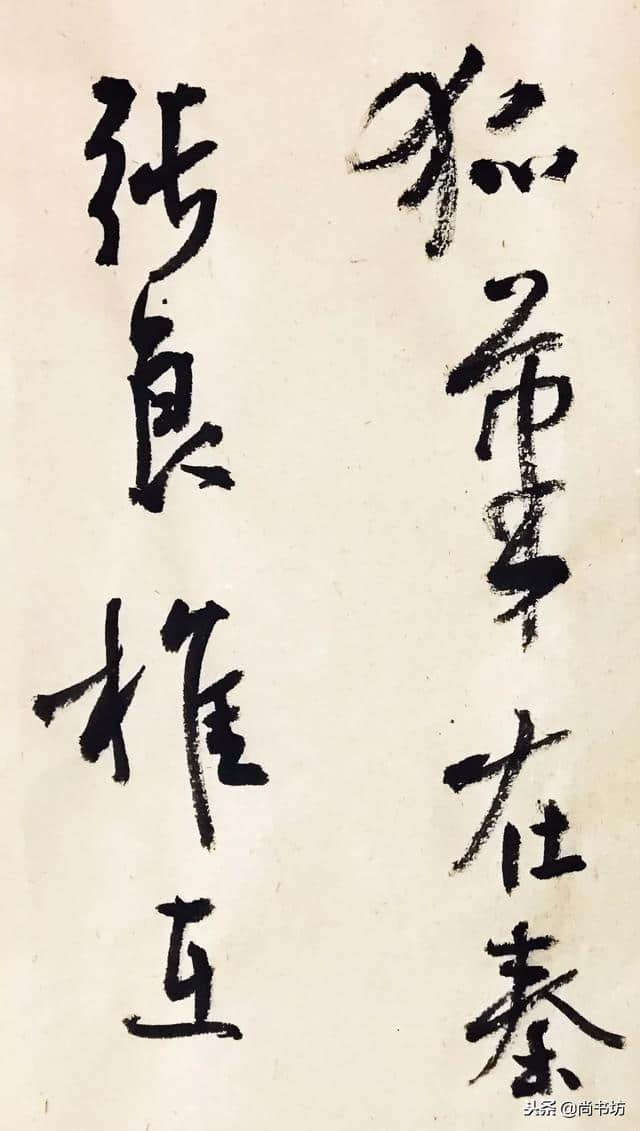 狐筆在秦
張良椎在
头条@尚书坊